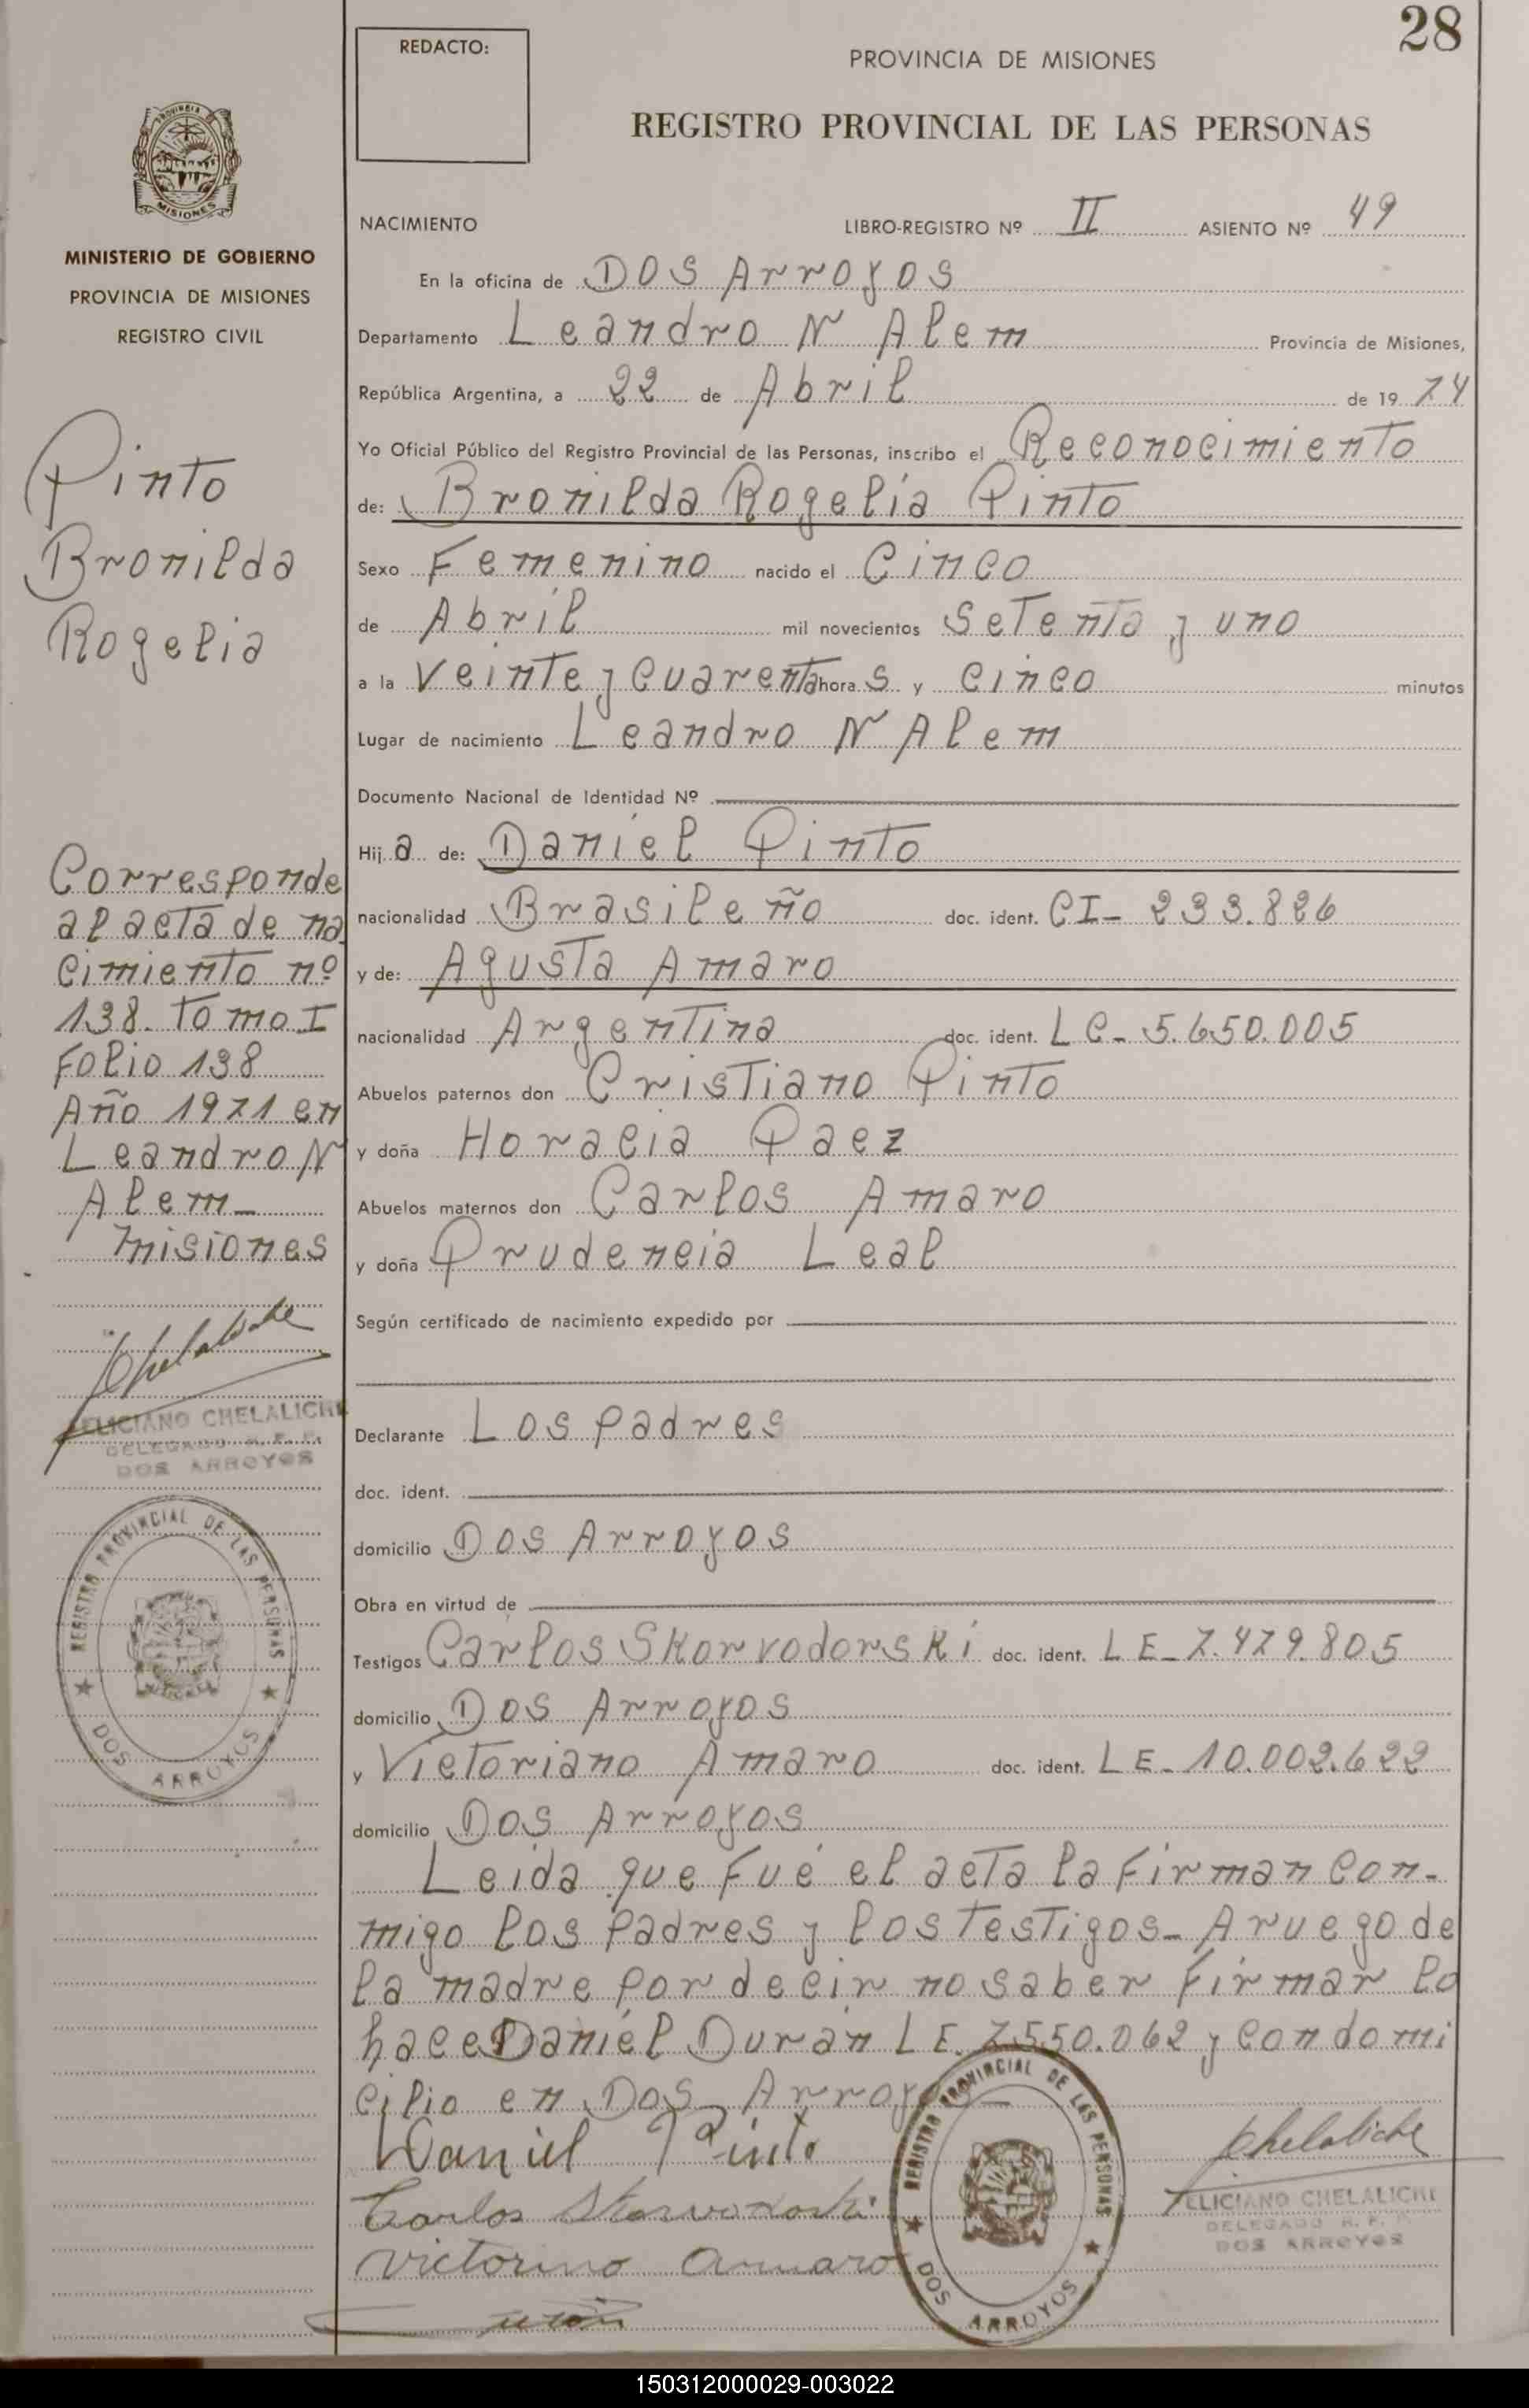 28
REDACTO:
PROVINCIA DE MISIONES
REGISTRO PROVINCIAL DE LAS PERSONAS
PROVINCIA DE
MISIONES
MINISTERIO DE GOBIERNO
PROVINCIA DE MISIONES
REGISTRO CIVIL
Pinto
Bronilda
Rogelia
Corresponde
al acta de na
cimiento nº
138. Tomo I
Folio 138
Año 1971 en
Leandro N
Alem -
Misiones
Chelaliche
FELICIANO CHELALICHE
DELEGADO R. P. P.
DOS ARROYOS
REGISTRO PROVINCIAL DE LAS PERSONAS
DOS ARROYOS
NACIMIENTO LIBRO-REGISTRO Nº II ASIENTO Nº 49
En la oficina de Dos Arroyos
Departamento Leandro N Alem Provincia de Misiones,
República Argentina, a 22 de Abril de 1974
Yo Oficial Público del Registro Provincial de las Personas, inscribo el Reconocimiento
de: Bronilda Rogelia Pinto
Sexo Femenino nacido el Cinco
de Abril mil novecientos setenta y uno
a la veinte y cuarenta horas y cinco minutos
Lugar de nacimiento Leandro N Alem
Documento Nacional de Identidad Nº
Hija de: Daniel Pinto
nacionalidad Brasileño doc. ident. CI- 233.826
y de: Agusta Amaro
nacionalidad Argentina doc. ident. LC- 5.650.005
Abuelos paternos don Cristiano Pinto
y doña Horacia Paez
Abuelos maternos don Carlos Amaro
y doña Prudencia Leal
Según certificado de nacimiento expedido por
Declarante Los padres
doc. ident.
domicilio Dos Arroyos
Obra en virtud de
Testigos Carlos Skorvodorski doc. ident. LE-7.479.805
domicilio Dos Arroyos
y Victoriano Amaro doc. ident. LE-10.002.622
domicilio Dos Arroyos
Leida que fué el acta la firman con-
migo los padres y los testigos- A ruego de
la madre por decir no saber firmar lo
hace Daniel Durán LE. 7.550.062 y con domi
cilio en Dos Arroyos-
Daniel Pinto
Carlos
Victorino Amaro
REGISTRO PROVINCIAL DE LAS PERSONAS
DOS ARROYOS
Chelaliche
FELICIANO CHELALICHE
DELEGADO R. P. P.
DOS ARROYOS
150312000029-003022